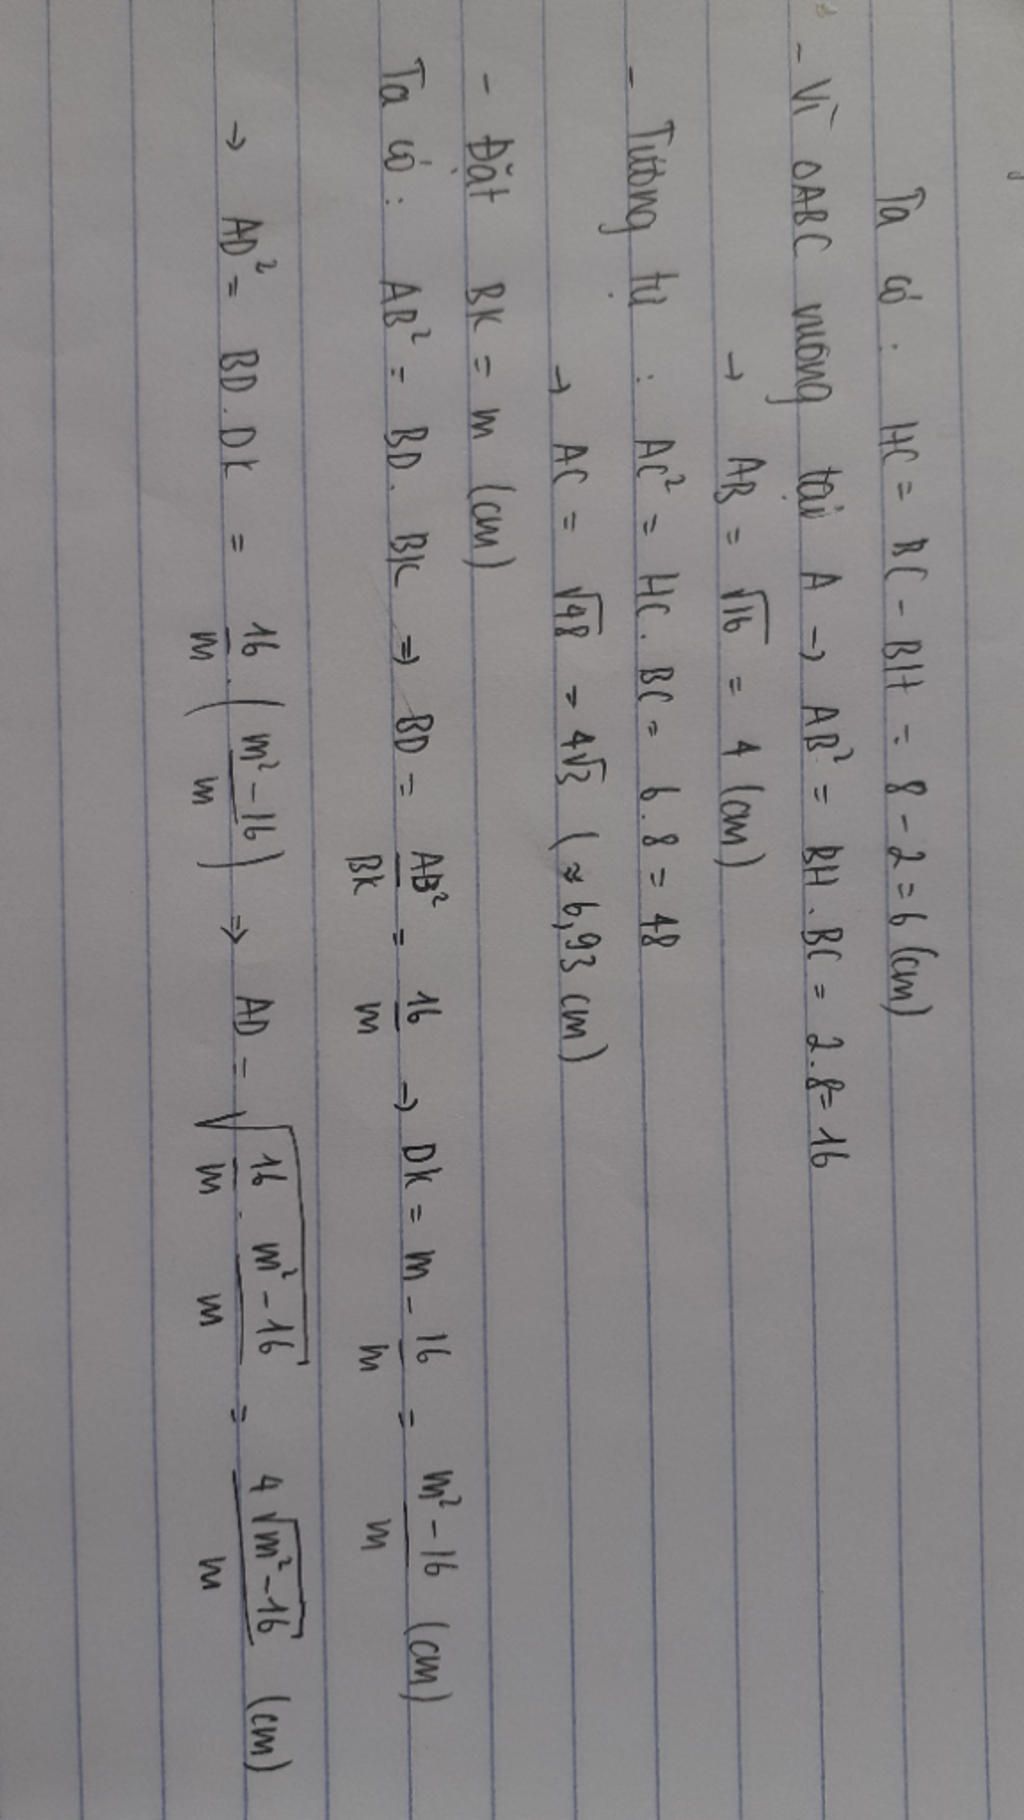 Ta có : HC = BC - BH = 8 - 2 = 6 (cm)
- Vì ΔABC vuông tại A → AB² = BH . BC = 2 . 8 = 16
→ AB = √16 = 4 (cm)
- Tương tự : AC² = HC . BC = 6 . 8 = 48
→ AC = √48 = 4√3 (≈ 6,93 cm)
- Đặt BK = m (cm)
Ta có : AB² = BD . BK ⇒ BD = AB²/BK = 16/m → DK = m - 16/m = (m² - 16)/m (cm)
→ AD² = BD . DK = 16/m . ((m² - 16)/m) ⇒ AD = √(16/m . (m² - 16)/m) = 4√(m² - 16)/m (cm)